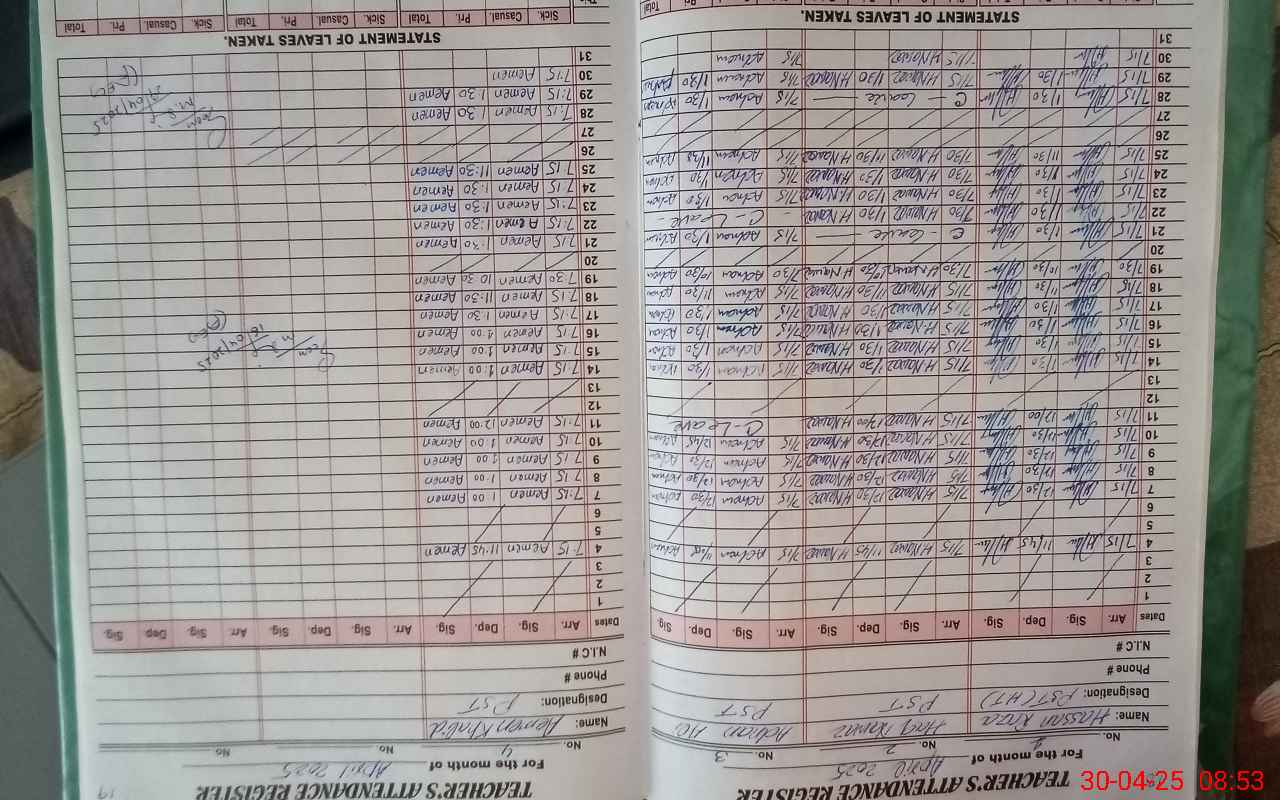 TEACHER'S ATTENDANCE REGISTER
For the month of April 2025
No. 1 No. 2 No. 3
Name: Hassan Raza Haq Nawaz Adnan
Designation: PST (HT) PST PST
Phone #
N.I.C #
Dates Arr. Sig. Dep. Sig. Arr. Sig. Dep. Sig. Arr. Sig. Dep. Sig.
1
2
3
4 7/15 11/45 7/15 H.Nawaz 11/45 H.Nawaz 7/15 Adnan 11/45 Adnan
5
6
7 7/15 12/30 7/15 H.Nawaz 12/30 H.Nawaz 7/15 Adnan 12/30 Adnan
8 7/15 12/30 7/15 H.Nawaz 12/30 H.Nawaz 7/15 Adnan 12/30 Adnan
9 7/15 12/30 7/15 H.Nawaz 12/30 H.Nawaz 7/15 Adnan 12/30 Adnan
10 7/15 12/30 7/15 H.Nawaz 12/30 H.Nawaz 7/15 Adnan 12/45 Adnan
11 7/15 12/00 7/15 H.Nawaz 12/00 H.Nawaz C-Leave
12
13
14 7/15 1/30 7/15 H.Nawaz 1/30 H.Nawaz 7/15 Adnan 1/30 Adnan
15 7/15 1/30 7/15 H.Nawaz 1/30 H.Nawaz 7/15 Adnan 1/30 Adnan
16 7/15 1/30 7/15 H.Nawaz 1/30 H.Nawaz 7/15 Adnan 1/30 Adnan
17 7/15 1/30 7/15 H.Nawaz 1/30 H.Nawaz 7/15 Adnan 1/30 Adnan
18 7/15 11/30 7/15 H.Nawaz 11/30 H.Nawaz 7/15 Adnan 11/30 Adnan
19 7/30 10/30 7/30 H.Nawaz 10/30 H.Nawaz 7/30 Adnan 10/30 Adnan
20
21 7/15 1/30 C - Leave - 7/15 Adnan 1/30 Adnan
22 7/15 1/30 7/30 H.Nawaz 1/30 H.Nawaz - C - Leave -
23 7/15 1/30 7/30 H.Nawaz 1/30 H.Nawaz 7/15 Adnan 1/30 Adnan
24 7/15 1/30 7/30 H.Nawaz 1/30 H.Nawaz 7/15 Adnan 1/30 Adnan
25 7/15 11/30 7/30 H.Nawaz 11/30 H.Nawaz 7/15 Adnan 11/30 Adnan
26
27
28 7/15 1/30 C - Leave - 7/15 Adnan 1/30 Adnan
29 7/15 1/30 7/15 H.Nawaz 1/30 H.Nawaz 7/15 Adnan 1/30 Adnan
30 7/15 7/15 H.Nawaz 7/15 Adnan
31
STATEMENT OF LEAVES TAKEN.
19
TEACHER'S ATTENDANCE REGISTER
For the month of April 2025
No. 4 No. No.
Name: Aemen Khalid
Designation: PST
Phone #
N.I.C #
Dates Arr. Sig. Dep. Sig. Arr. Sig. Dep. Sig. Arr. Sig. Dep. Sig.
1
2
3
4 7:15 Aemen 11:45 Aemen
5
6
7 7:15 Aemen 1:00 Aemen
8 7:15 Aemen 1:00 Aemen
9 7:15 Aemen 1:00 Aemen
10 7:15 Aemen 1:00 Aemen
11 7:15 Aemen 12:00 Aemen
12
13
14 7:15 Aemen 1:00 Aemen
15 7:15 Aemen 1:00 Aemen
16 7:15 Aemen 1:00 Aemen
17 7:15 Aemen 1:30 Aemen
18 7:15 Aemen 11:30 Aemen
19 7:30 Aemen 10:30 Aemen
20
21 7:15 Aemen 1:30 Aemen
22 7:15 Aemen 1:30 Aemen
23 7:15 Aemen 1:30 Aemen
24 7:15 Aemen 1:30 Aemen
25 7:15 Aemen 11:30 Aemen
26
27
28 7:15 Aemen 1:30 Aemen
29 7:15 Aemen 1:30 Aemen
30 7:15 Aemen
31
Seen
16/04/2025
Seen
STATEMENT OF LEAVES TAKEN.
Sick. Casual. Pri. Total Sick. Casual. Pri. Total Sick. Casual. Pri. Total
30-04-25 08:53